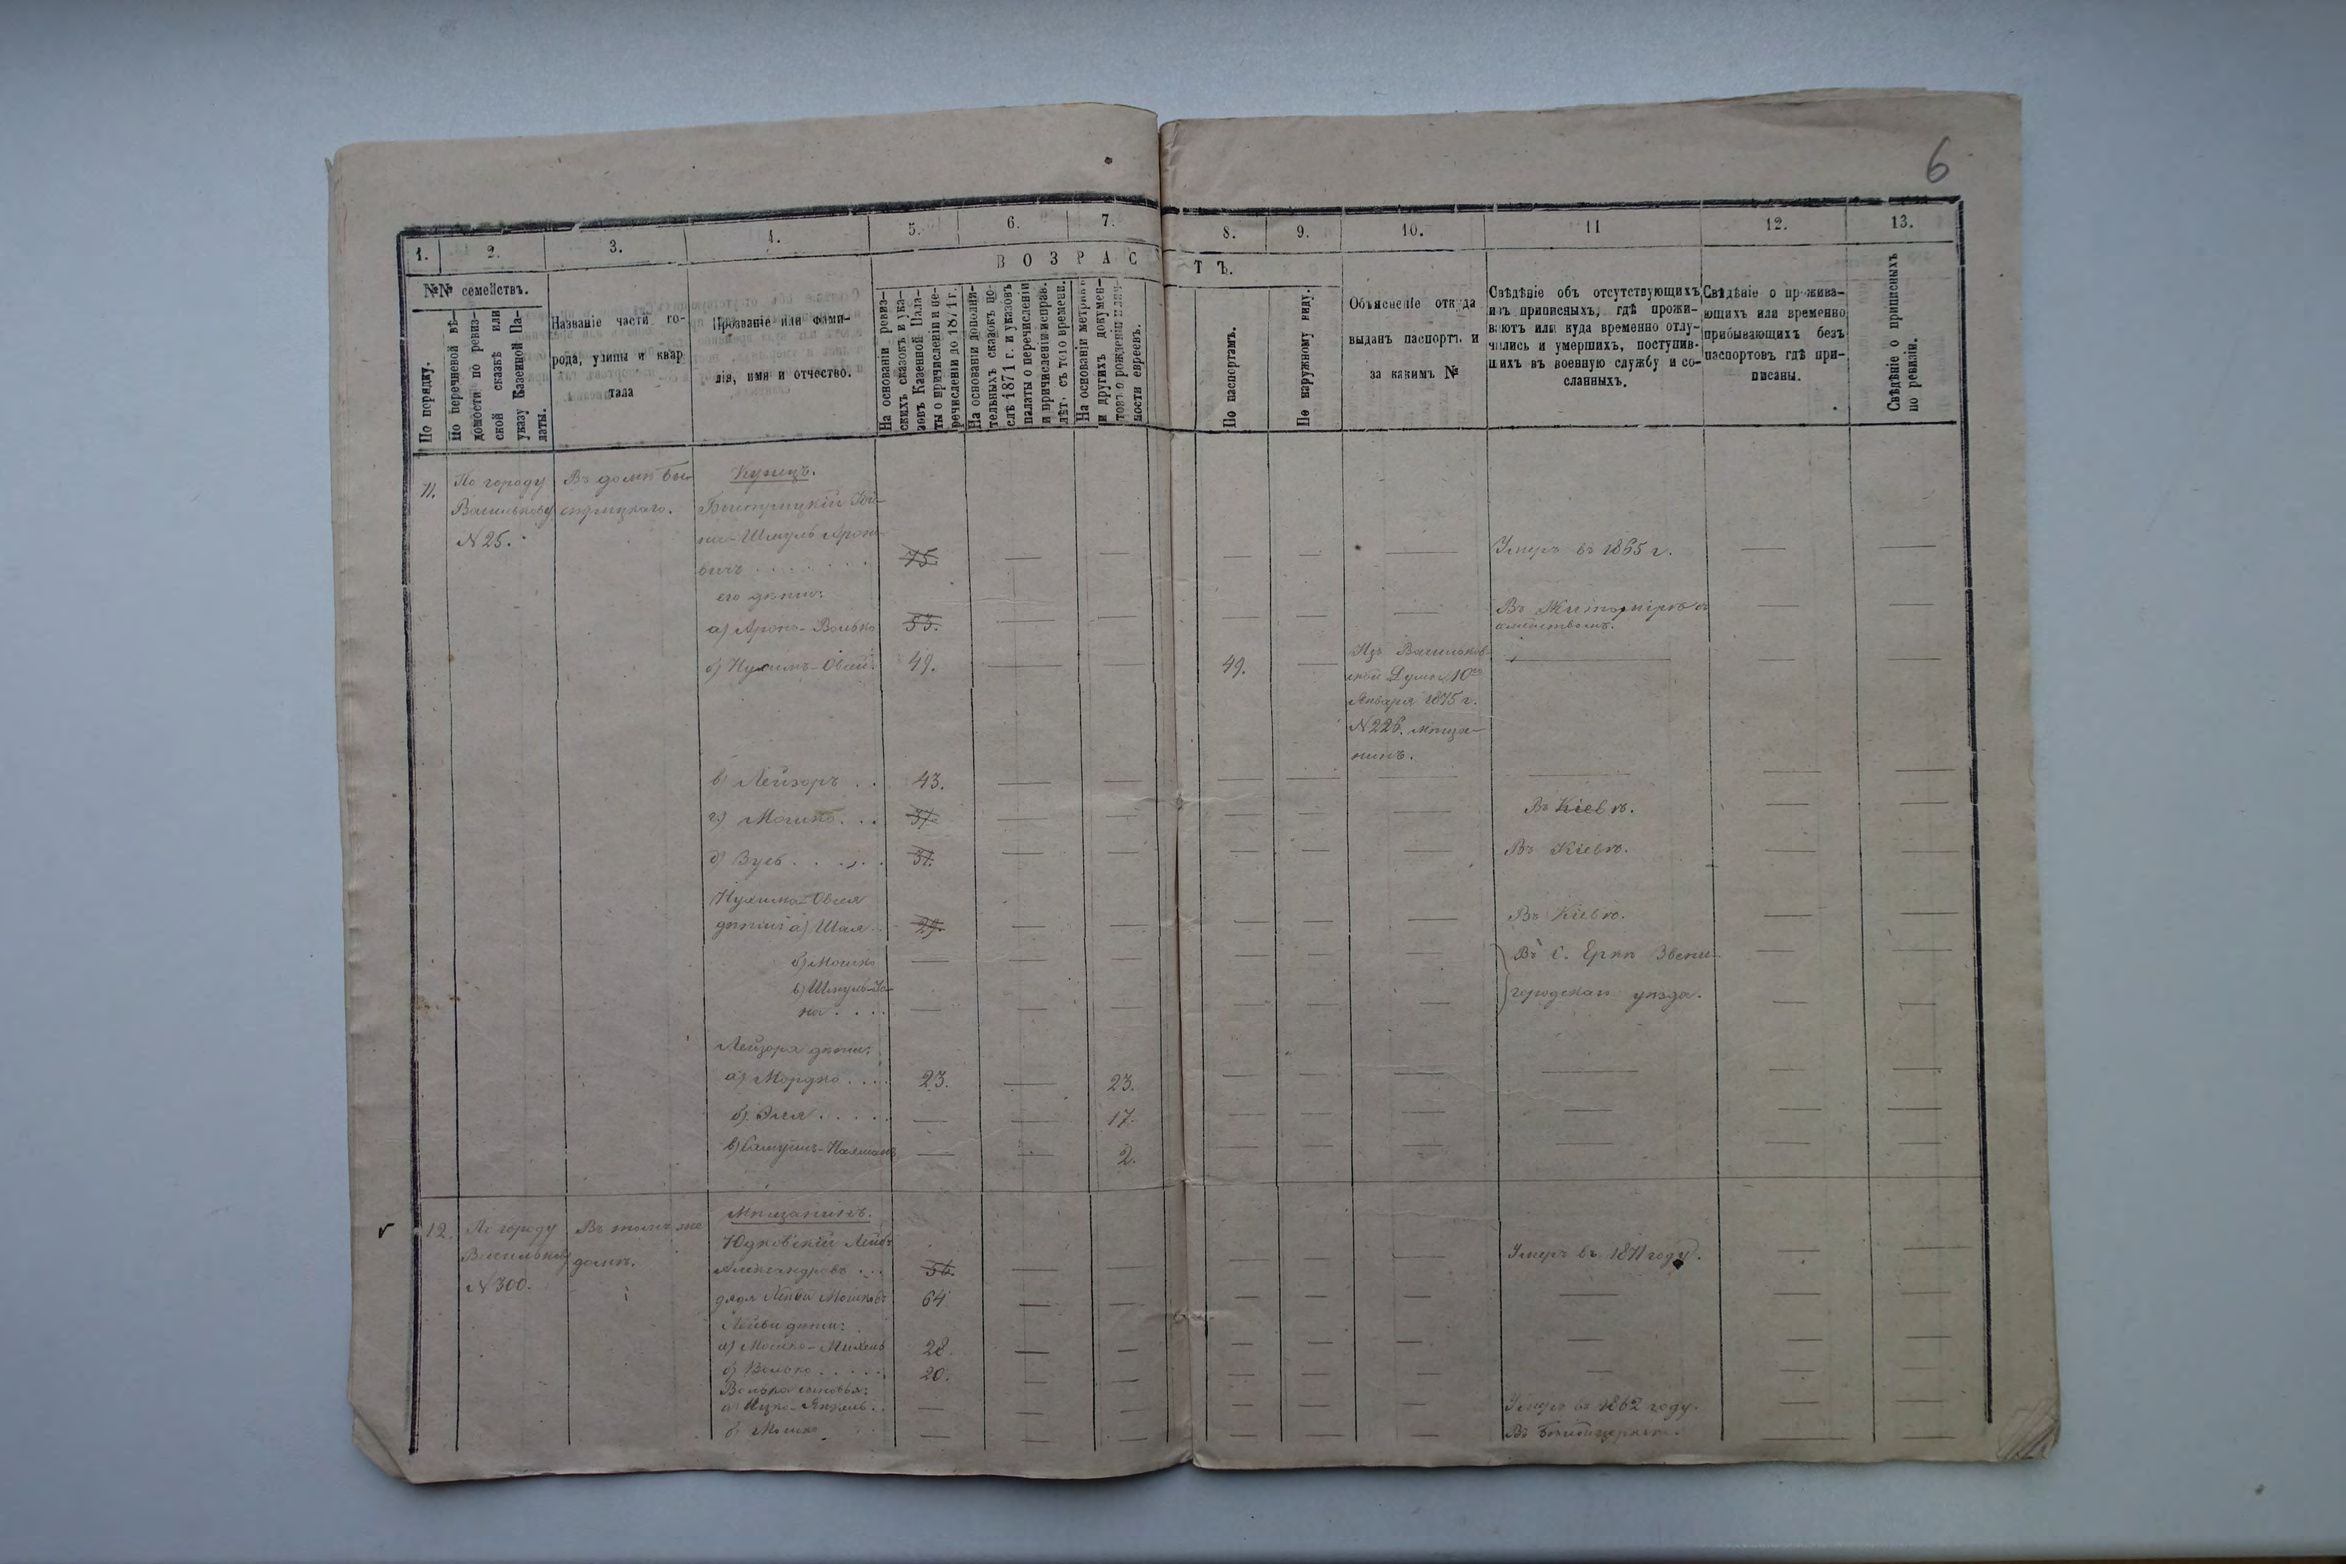 6
1. 2. 3. 4. 5. 6. 7. 8. 9. 10. 11 12. 13.
№№ семействъ.
ВОЗРАСТЪ.
По порядку.
По перечневой вѣ-
домости по ревиз-
ской сказкѣ или
указу Казенной Па-
латы.
Названіе части го-
рода, улицы и квар
тала
Прозваніе или фами-
лія, имя и отчество.
На основаніи ревиз-
скихъ сказокъ и ука-
зовъ Казенной Пала-
ты о причисленіи и пе-
речисленіи до 1871 г.
На основаніи дополни-
тельныхъ сказокъ по-
слѣ 1871 г. и указовъ
палаты о перечисленіи
и причисленіи исправ.
лѣт. съ того времени.
На основаніи метрик
и другихъ докумен-
товъ о рожденіи
ности евреевъ.
По паспортамъ.
По наружному виду.
Объясненіе откуда
выданъ паспортъ и
за какимъ №
Свѣдѣніе объ отсутствующихъ
изъ приписныхъ, гдѣ прожи-
ваютъ или куда временно отлу-
чились и умершихъ, поступив-
шихъ въ военную службу и со-
сланныхъ.
Свѣдѣніе о прожива-
ющихъ или временно
прибывающихъ безъ
паспортовъ гдѣ при-
писаны.
Свѣдѣніе о приписныхъ
по ревизіи.
11. По городу Въ домѣ Бы- Купецъ.
Василькову стрицкаго. Быстрицкій
N 25. Шмуль Арон-
вичъ 75. Умеръ въ 1865 г.
его дѣти:
а) Аронъ-Волько 53. Въ Житомірѣ съ
семействомъ.
б) Нухимъ-Овсій. 49. 49. Изъ Васильков-
ской Думы 10го
Января 1875 г.
N 226. мѣща-
нинъ.
в) Лейзоръ . . 43.
г) Мошко. . . 37. Въ Кіевѣ.
д) Вуль . . . . 31. Въ Кіевѣ.
Нухима-Овсія
дѣти: а) Шая 29. Въ Кіевѣ.
б) Мошко Въ с. Ерки Звени-
в) Шмуль-Іо-
на . . . . городскаго уѣзда.
Лейзора дѣти:
а) Мордко . . . . 23. 23.
б) Эля . . . . . 17.
в) 2.
12. По городу Въ томъ же Мѣщанинъ.
Василькову домѣ. Юдковскій Лейба
N 300. Александровъ . . . 56. Умеръ въ 1871 году.
дядя Лейбы Мошковъ 64
Лейбы дѣти:
а) Мошко-Михель 28.
б) Волько . . . . . 20.
Волька сыновья:
а) Ицко-Янкель . . Умеръ въ 1862 году.
б) Мошко Въ Бѣлойцеркви.